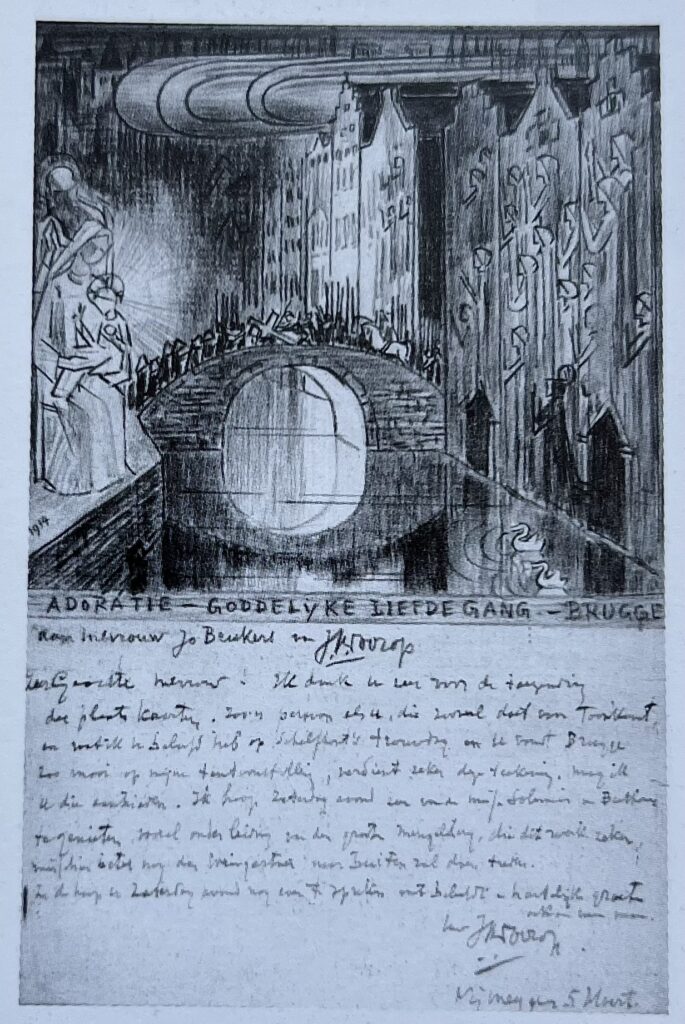 1914
ADORATIE – GODDELYKE LIEFDE GANG – BRUGGE
Aan Mevrouw Jo Beukers van J.Th.Toorop
Zeer Geachte Mevrouw! Ik dank u zeer voor de toezending
der plaats kaarten. Zoo'n persoon als u, die zooveel doet voor Toonkunst,
en wat ik u beloofd heb op trouwdag en u vondt Brugge
zoo mooi op mijne tentoonstelling, verdient zeker deze teekening, mag ik
u die aanbieden. Ik hoop Zaterdag avond zeer van de Missa Solemnis v. Beethoven
te genieten, vooral onder leiding van den grooten Mengelberg, die dit werk zeker,
misschien beter nog dan Weingartner naar buiten zal doen treden.
In de hoop u Zaterdag avond nog even te spreken met beleefde en hartelijke groeten
ook aan uw man.
uw JThToorop
Nijmegen 5 Maart.